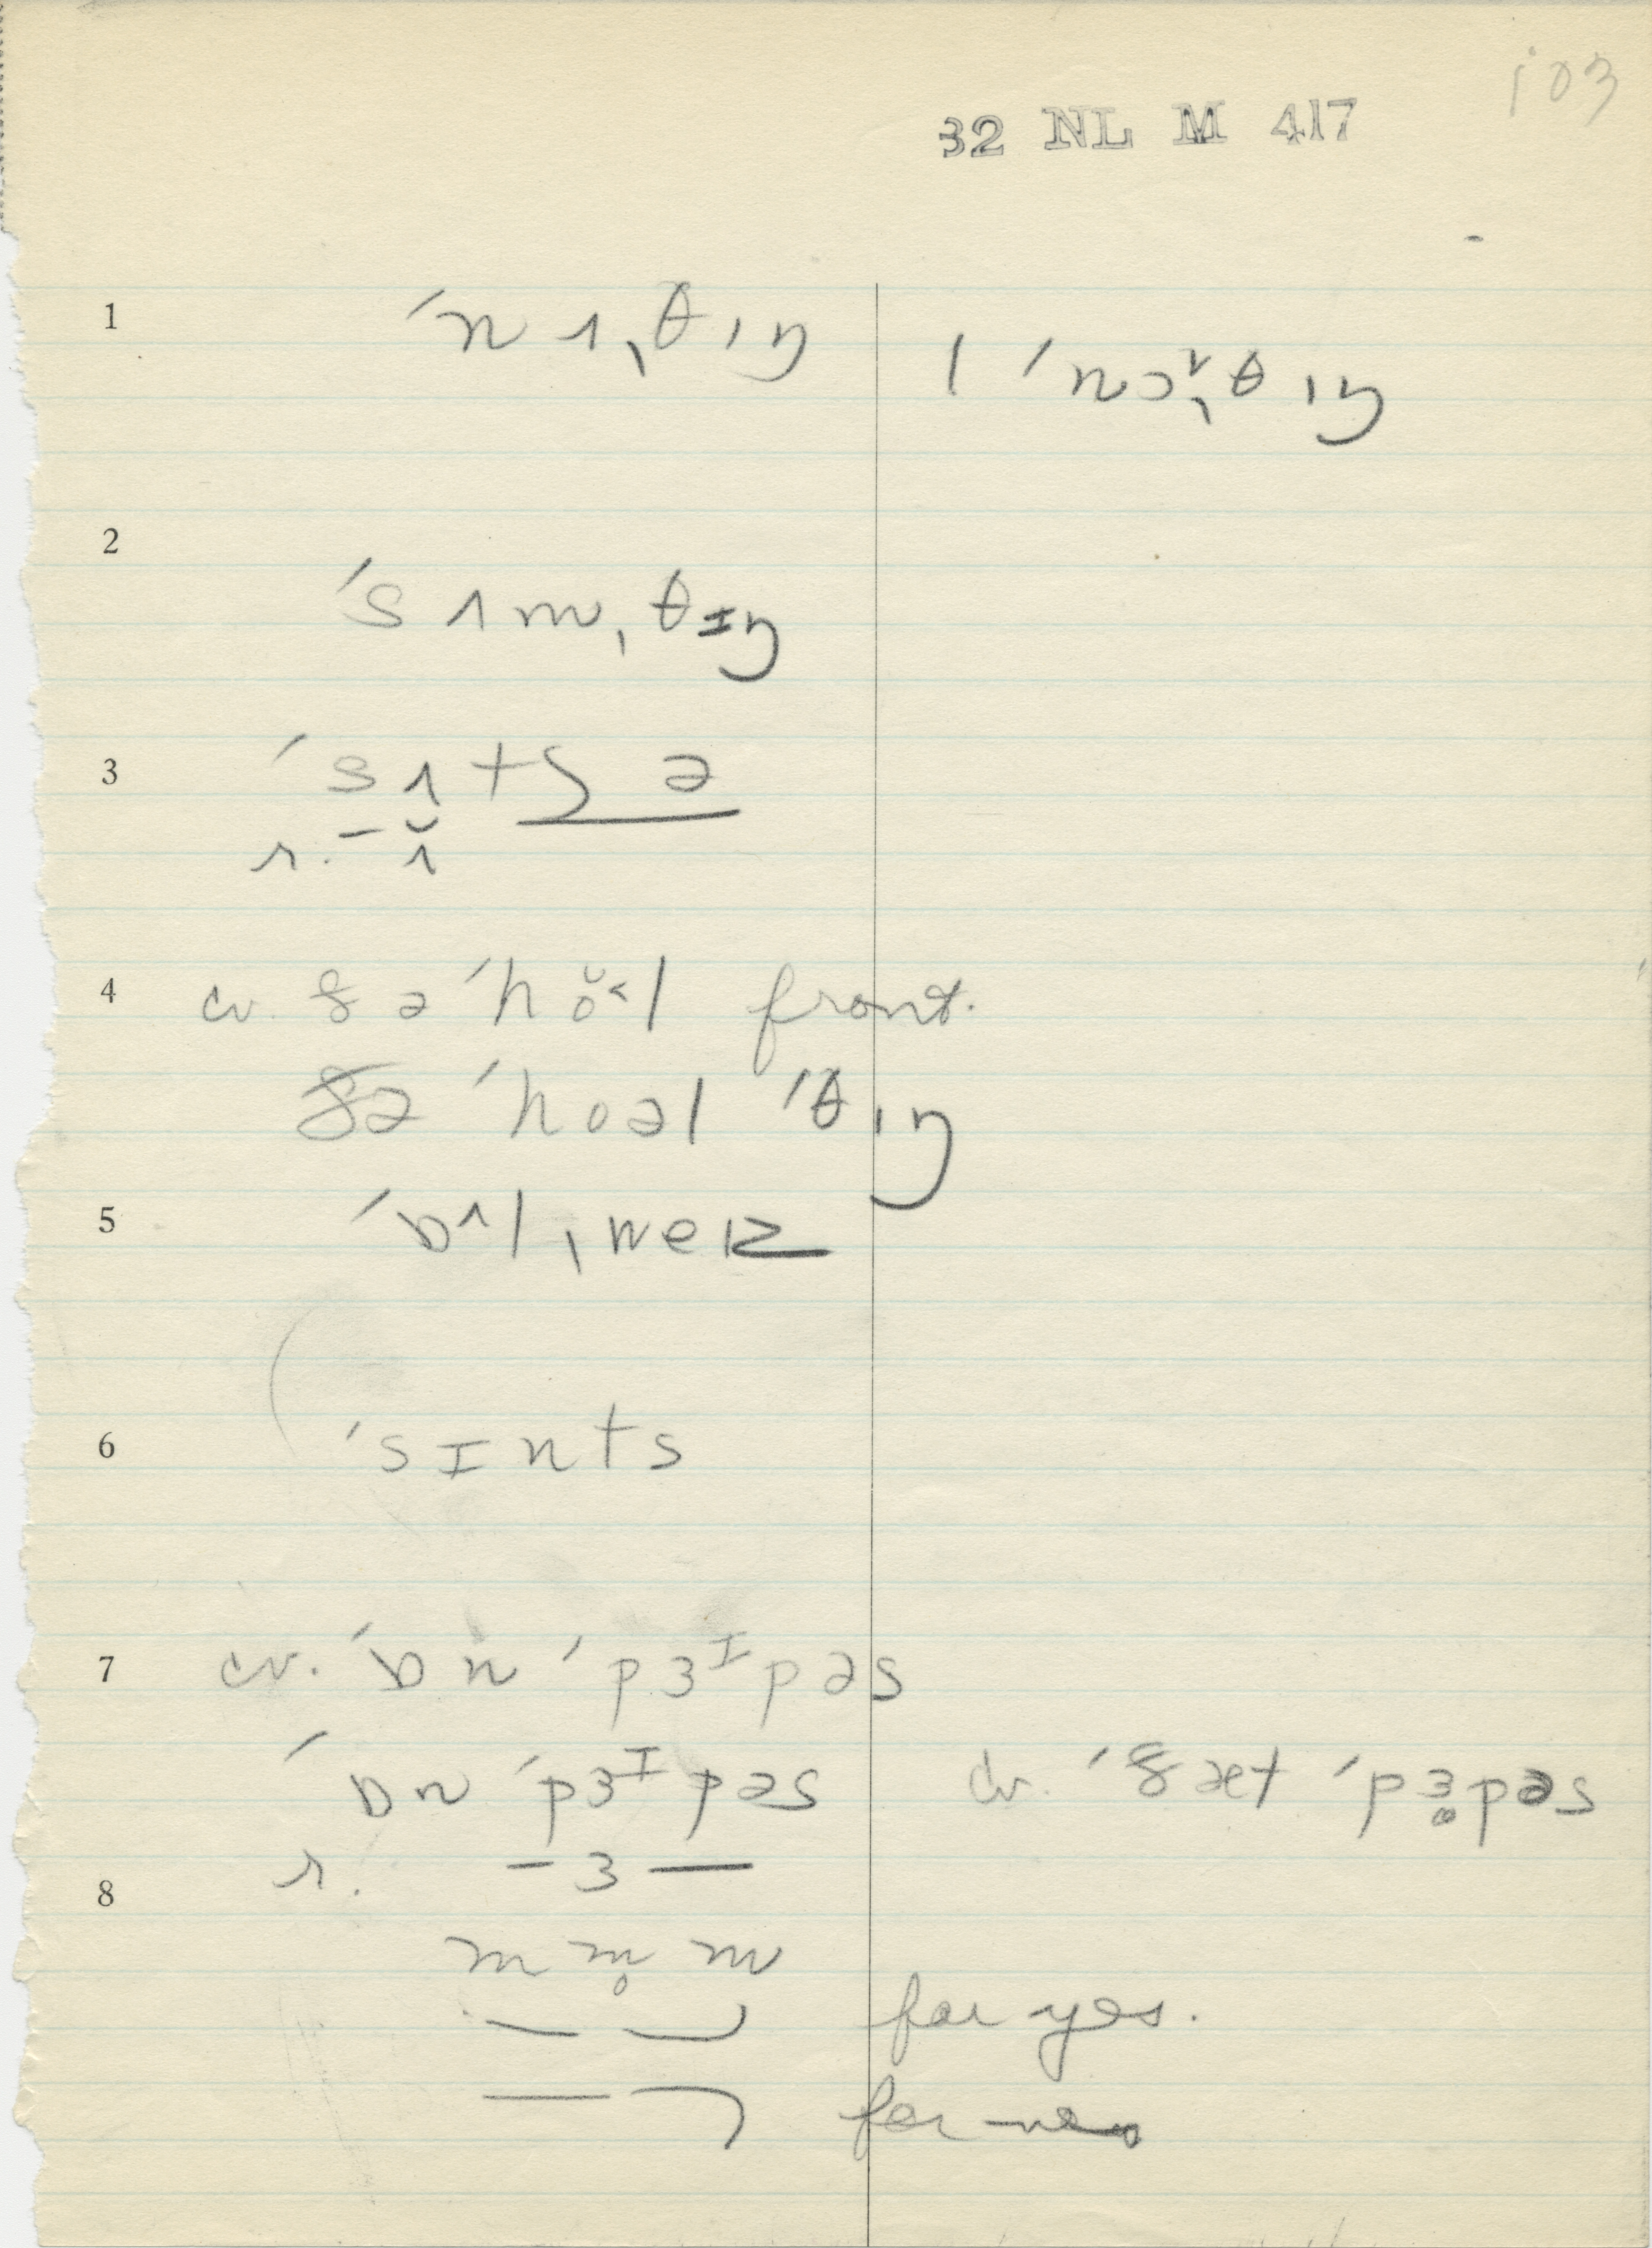 103
32 NL M 417
1 ˈnʌˌθɪŋ | ˈnɔ˅ˌθɪŋ
2
ˈsʌmˌθɪŋ
3 ˈsʌtʃə
r. – ʌ̆
4 cv. ðəˈhŏ˂l front.
ðə ˈhoəl ˈθɪŋ
5 ˈɒˆlˌweɪz
6 ˈsɪnts
7 cv. ˈɒn ˈpɜᶦpəs
ˈɒn ˈpɜᶦpəs cv. ˈðæt ˈpɜpəs
r. – ɜ —
8
m m̥ m
for yes.
for no